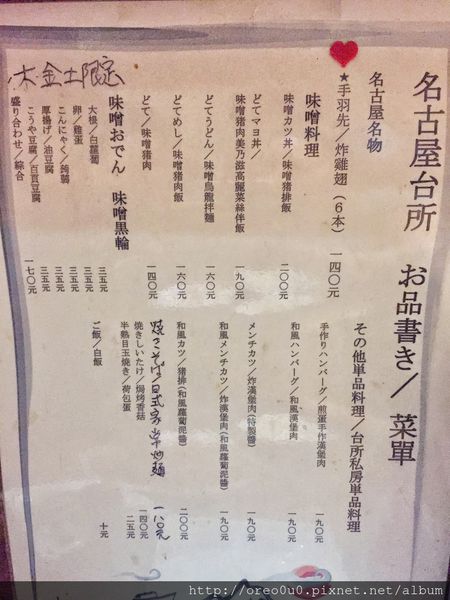 名古屋台所　お品書き／菜單
名古屋名物
★手羽先／炸雞翅（6本）　一四〇元
味噌料理
味噌カツ丼／味噌豬排飯　二〇〇元
どてマヨ丼／
味噌豬肉美乃滋高麗菜絲伴飯　一九〇元
どてうどん／味噌烏龍拌麵　一六〇元
どてめし／味噌豬肉飯　一六〇元
どて／味噌豬肉　一四〇元
木金土限定
味噌おでん　味噌黑輪
大根／白蘿蔔　三五元
卵／雞蛋　三五元
こんにゃく／蒟蒻　三五元
厚揚げ／油豆腐　三五元
こうや豆腐／百頁豆腐　三五元
盛り合わせ／綜合　一七〇元
その他単品料理／台所私房単品料理
手作りハンバーグ／煎蛋手作漢堡肉　一九〇元
和風ハンバーグ／和風漢堡肉　一九〇元
メンチカツ／炸漢堡肉(特製醬)　一九〇元
和風メンチカツ／炸漢堡肉(和風蘿蔔泥醬)　一九〇元
和風カツ／豬排(和風蘿蔔泥醬)　二〇〇元
焼きそば日式家常炒麵　一八〇元
焼きしいたけ／焗烤香菇　一四〇元
半熟目玉焼き／荷包蛋　二五元
ご飯／白飯　十元
http://oreo0u0.pixnet.net/album